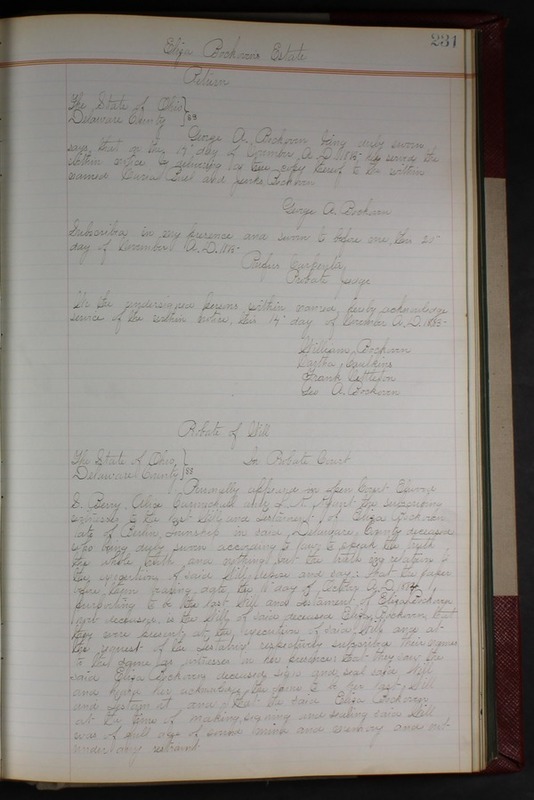 231
Eliza Bockoven Estate
Return
The State of Ohio }
Delaware County } SS
George A. Bockoven being duly sworn
says, that on the 19" day of November A.D. 1885 he served the
within notice by delivering a true copy hereof to the within
named and Bockoven
George A. Bockoven
Subscribed in my presence and sworn to before me, this 20"
day of November A.D. 1885
Rufus Carpenter,
Probate Judge
We the undersigned persons within named, hereby acknowledge
service of the within notice, this 19" day of November A.D. 1885.
William Bockoven
Frank Nettleton
Geo A. Bockoven
Probate of Will
The State of Ohio, } In Probate Court
Delaware County } SS
Personally appeared in open Court
S. Berry, Carmichael the subscribing
witnesses to the last Will and testament of Eliza Bockoven
late of Berlin, township in said Delaware, County deceased
who being duly sworn according to law to speak the truth
the whole truth and nothing but the truth in relation to
the execution of said Will depose and say: that the paper
before them bearing date, the day of October A.D.
purporting to be the last Will and testament of Eliza Bockoven
now deceased, is the Will of said deceased Eliza Bockoven, that
they were present at the execution of said Will, and at
the request of the testatrix respectively subscribed their names
to the same as witnesses in her presence that they saw the
said Eliza Bockoven deceased, sign and seal said Will
and heard her acknowledge the same to be her last Will
and testament and that the said Eliza Bockoven
at the time of making, signing and sealing said Will
was of full age of sound mind and memory and not
under any restraint